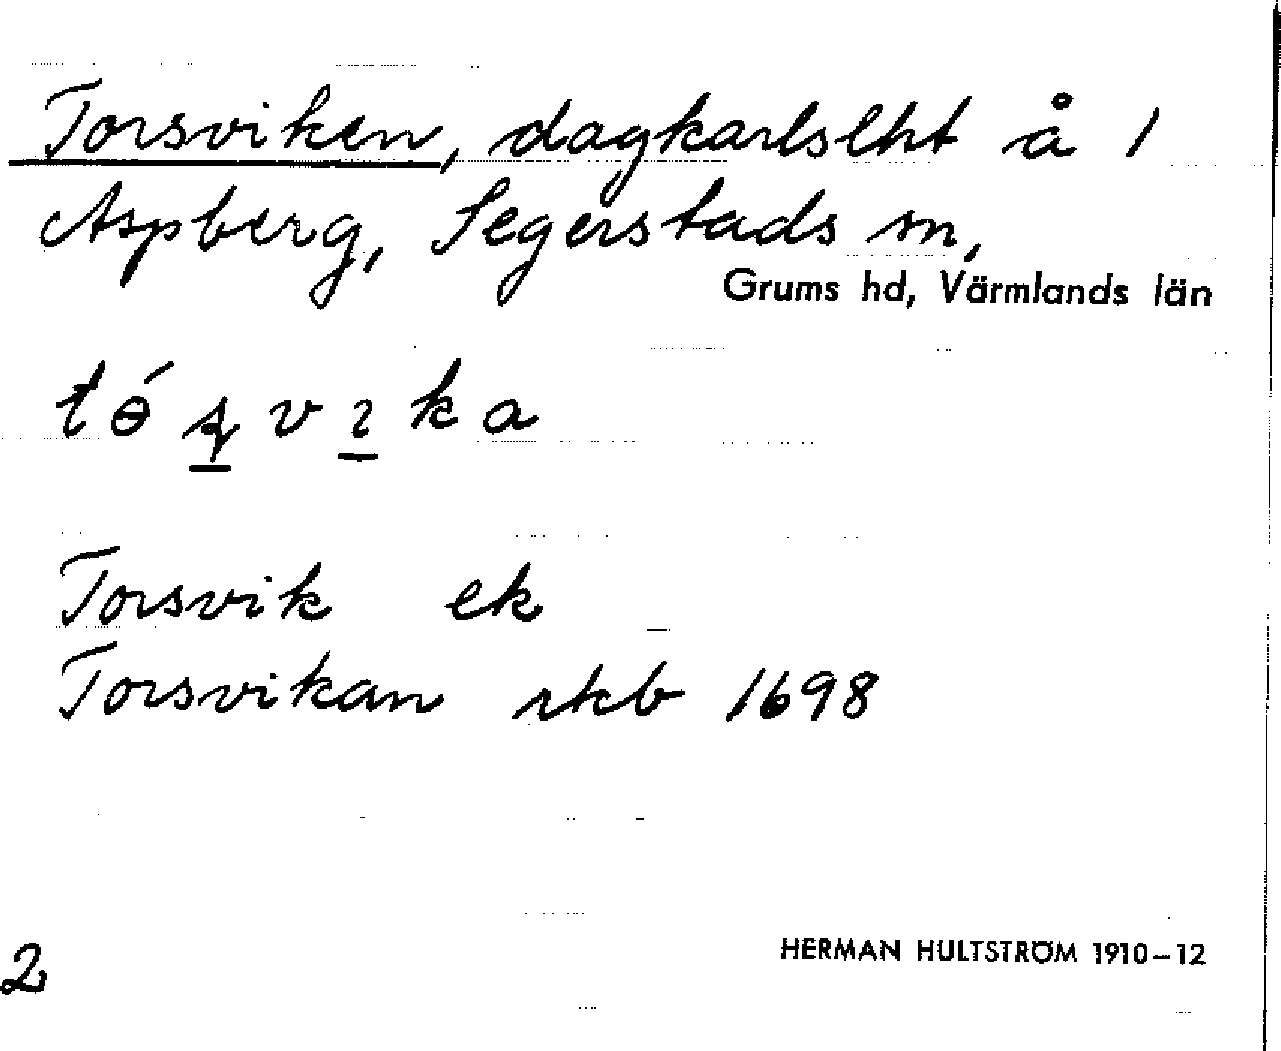 Torsviken, dagkarlslht å 1
Aspberg, Segerstads sn,
Grums hd, Värmlands län
Torsvik ek
Torsvikan rkb 1698
HERMAN HULTSTRÖM 1910–12
2